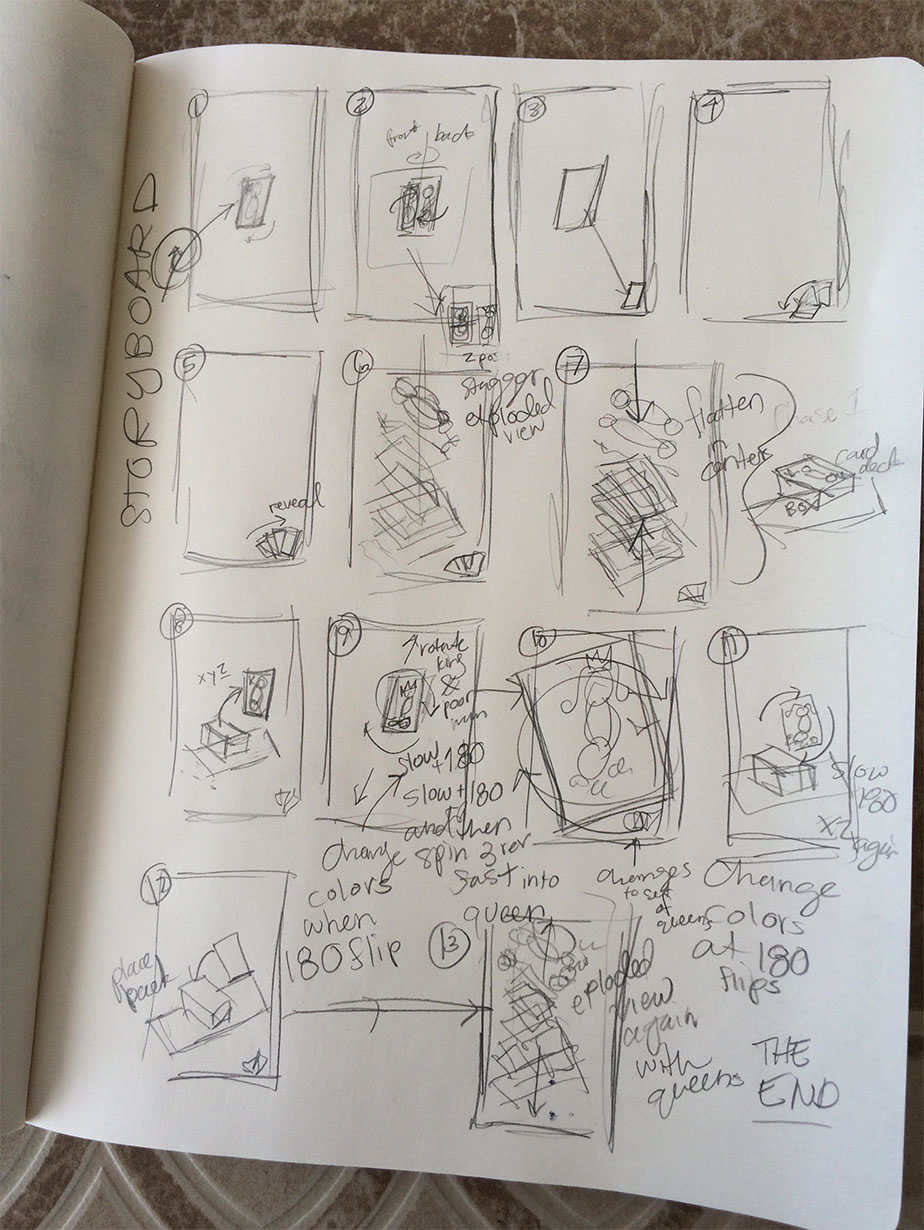 STORYBOARD
1
2
front back
3
4
5
reveal
6
stagger
exploded
view
7
flatten
center
Phase 1
card
deck
BOX
8
XYZ
9
rotate
king
&
poor
man
slow +180
slow +180
and then
spin 3 rev
fast into
queen
change
colors
when
180 flip
10
changes
to set
of
queens
11
slow
180
XZ
again
change
colors
at 180
flips
12
place
back
13
exploded
view
again
with
queens
THE
END